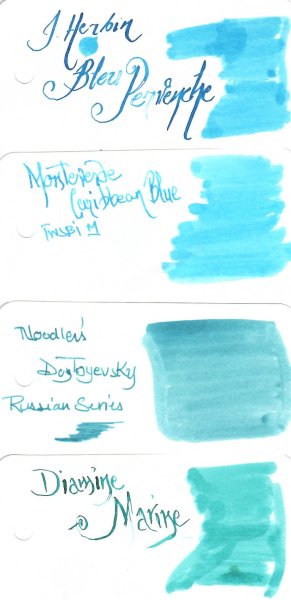 J. Herbin
Bleu
Pervenche
Monteverde
Caribbean Blue
TWSBI M
Noodler's
Dostoyevsky
Russian Series
Diamine
Marine